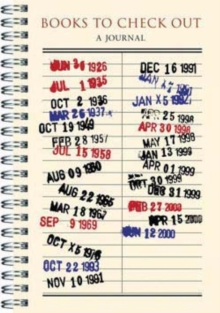 BOOKS TO CHECK OUT
A JOURNAL
JUN 3 1926
JUL 1 1935
OCT 2 1936
MAR 26 1937
OCT 19 1949
FEB 28 1957
JUL 15 1958
AUG 09 1960
AUG 22 1965
MAR 18 1967
SEP 9 1969
OCT 1976
OCT 22 1993
NOV 10 1991
DEC 16 1991
JAN
JAN 1997
APR 25 1998
APR 30 1998
MAY 17 1998
JAN 13 1999
APR 01 1999
OCT 30 1999
DEC 31 1999
FEB 27 2000
APR 15 2000
JUN 12 2000